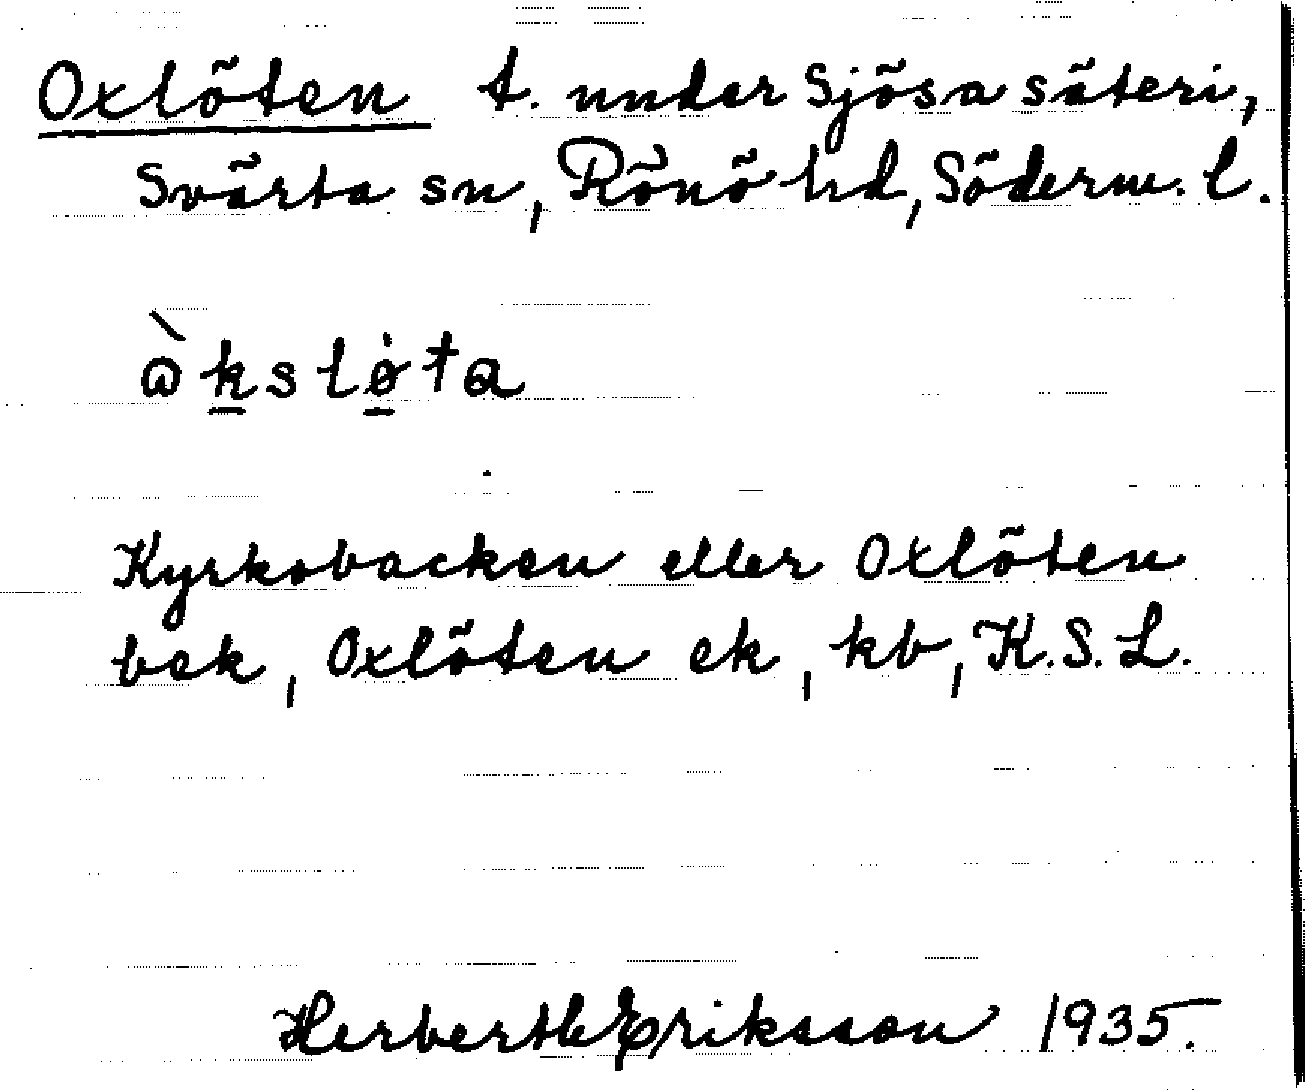 Oxlöten t. under Sjösa säteri,
Svärta sn, Rönö hd, Söderm. l.
ὼkslø̇ta
Kyrkobacken eller Oxlöten
bek, Oxlöten ek, kb, K.S.L.
Herbert Eriksson 1935.